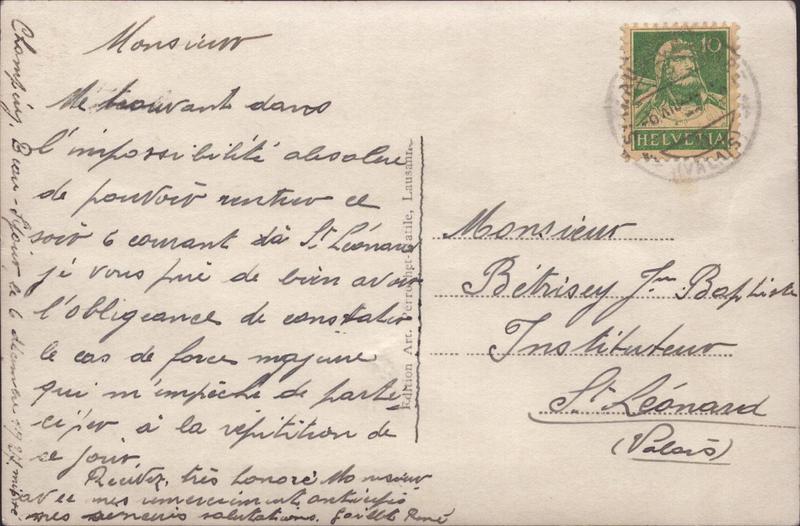 Monsieur
Me trouvant dans
l'impossibilité absolue
de pouvoir rentrer ce
soir 6 courant à St. Léonard
je vous prie de bien avoir
l'obligeance de constater
le cas de force majeure
qui m'empêche de parti-
ciper à la répitition de
ce jour.
Recevez, très honoré Monsieur
avec mes remerciements anticipés
mes sincères salutations.
René
Champéry, Beau-Séjour, le 6 décembre
Edition Art. Perrochet-Matile, Lausanne
10
HELVETIA
(VALAIS)
Monsieur
Bétrisey Jn Baptiste
Instituteur
St. Léonard
(Valais)